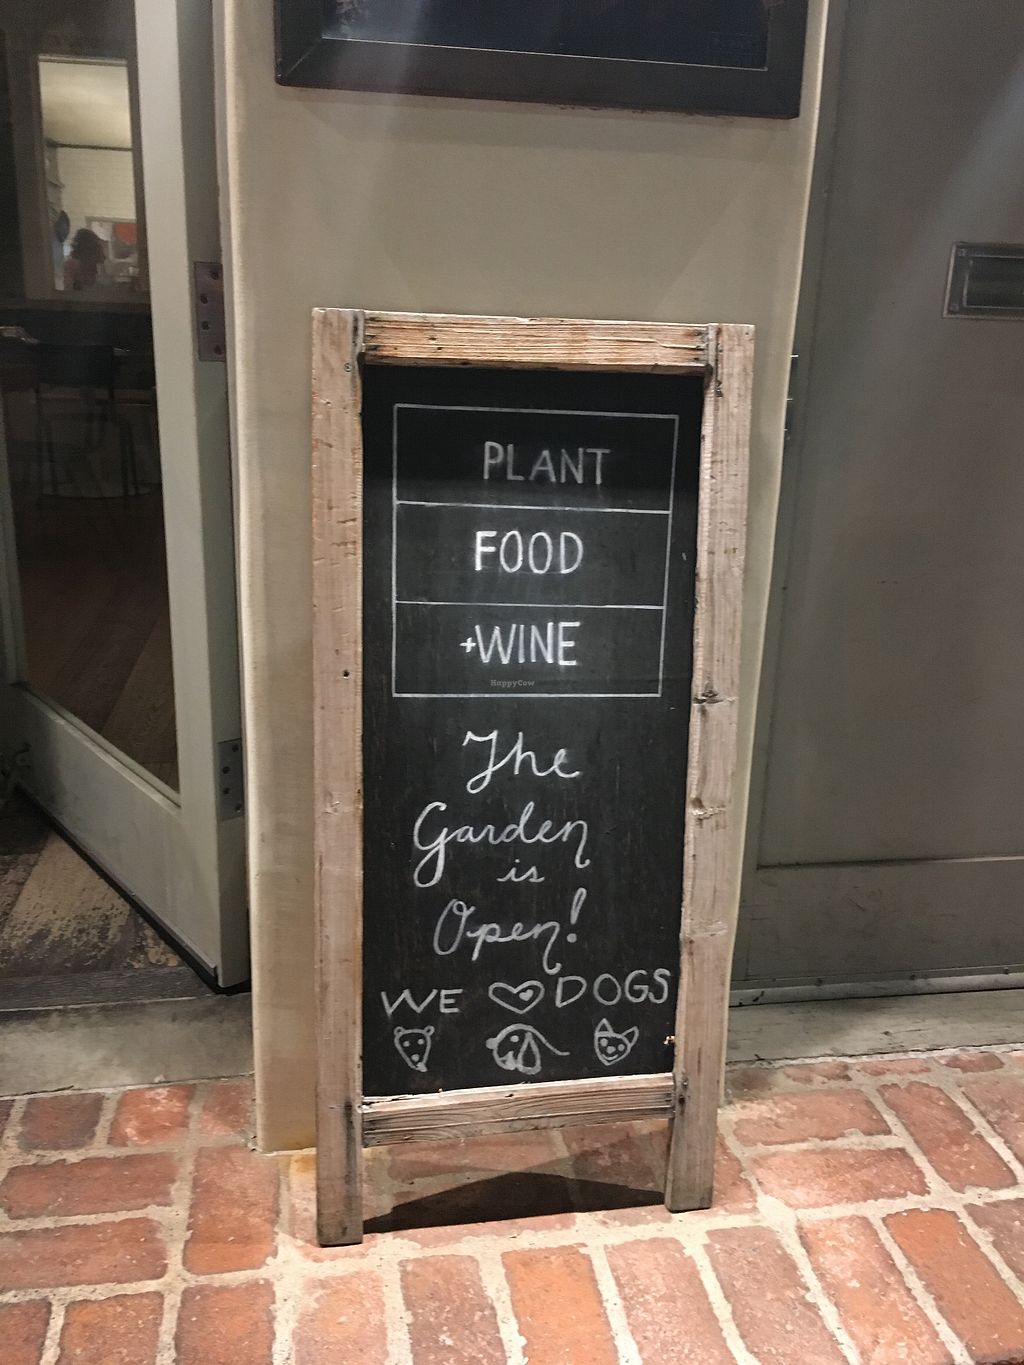 PLANT
FOOD
+WINE
HappyCow
The
Garden
is
Open!
WE ♡ DOGS